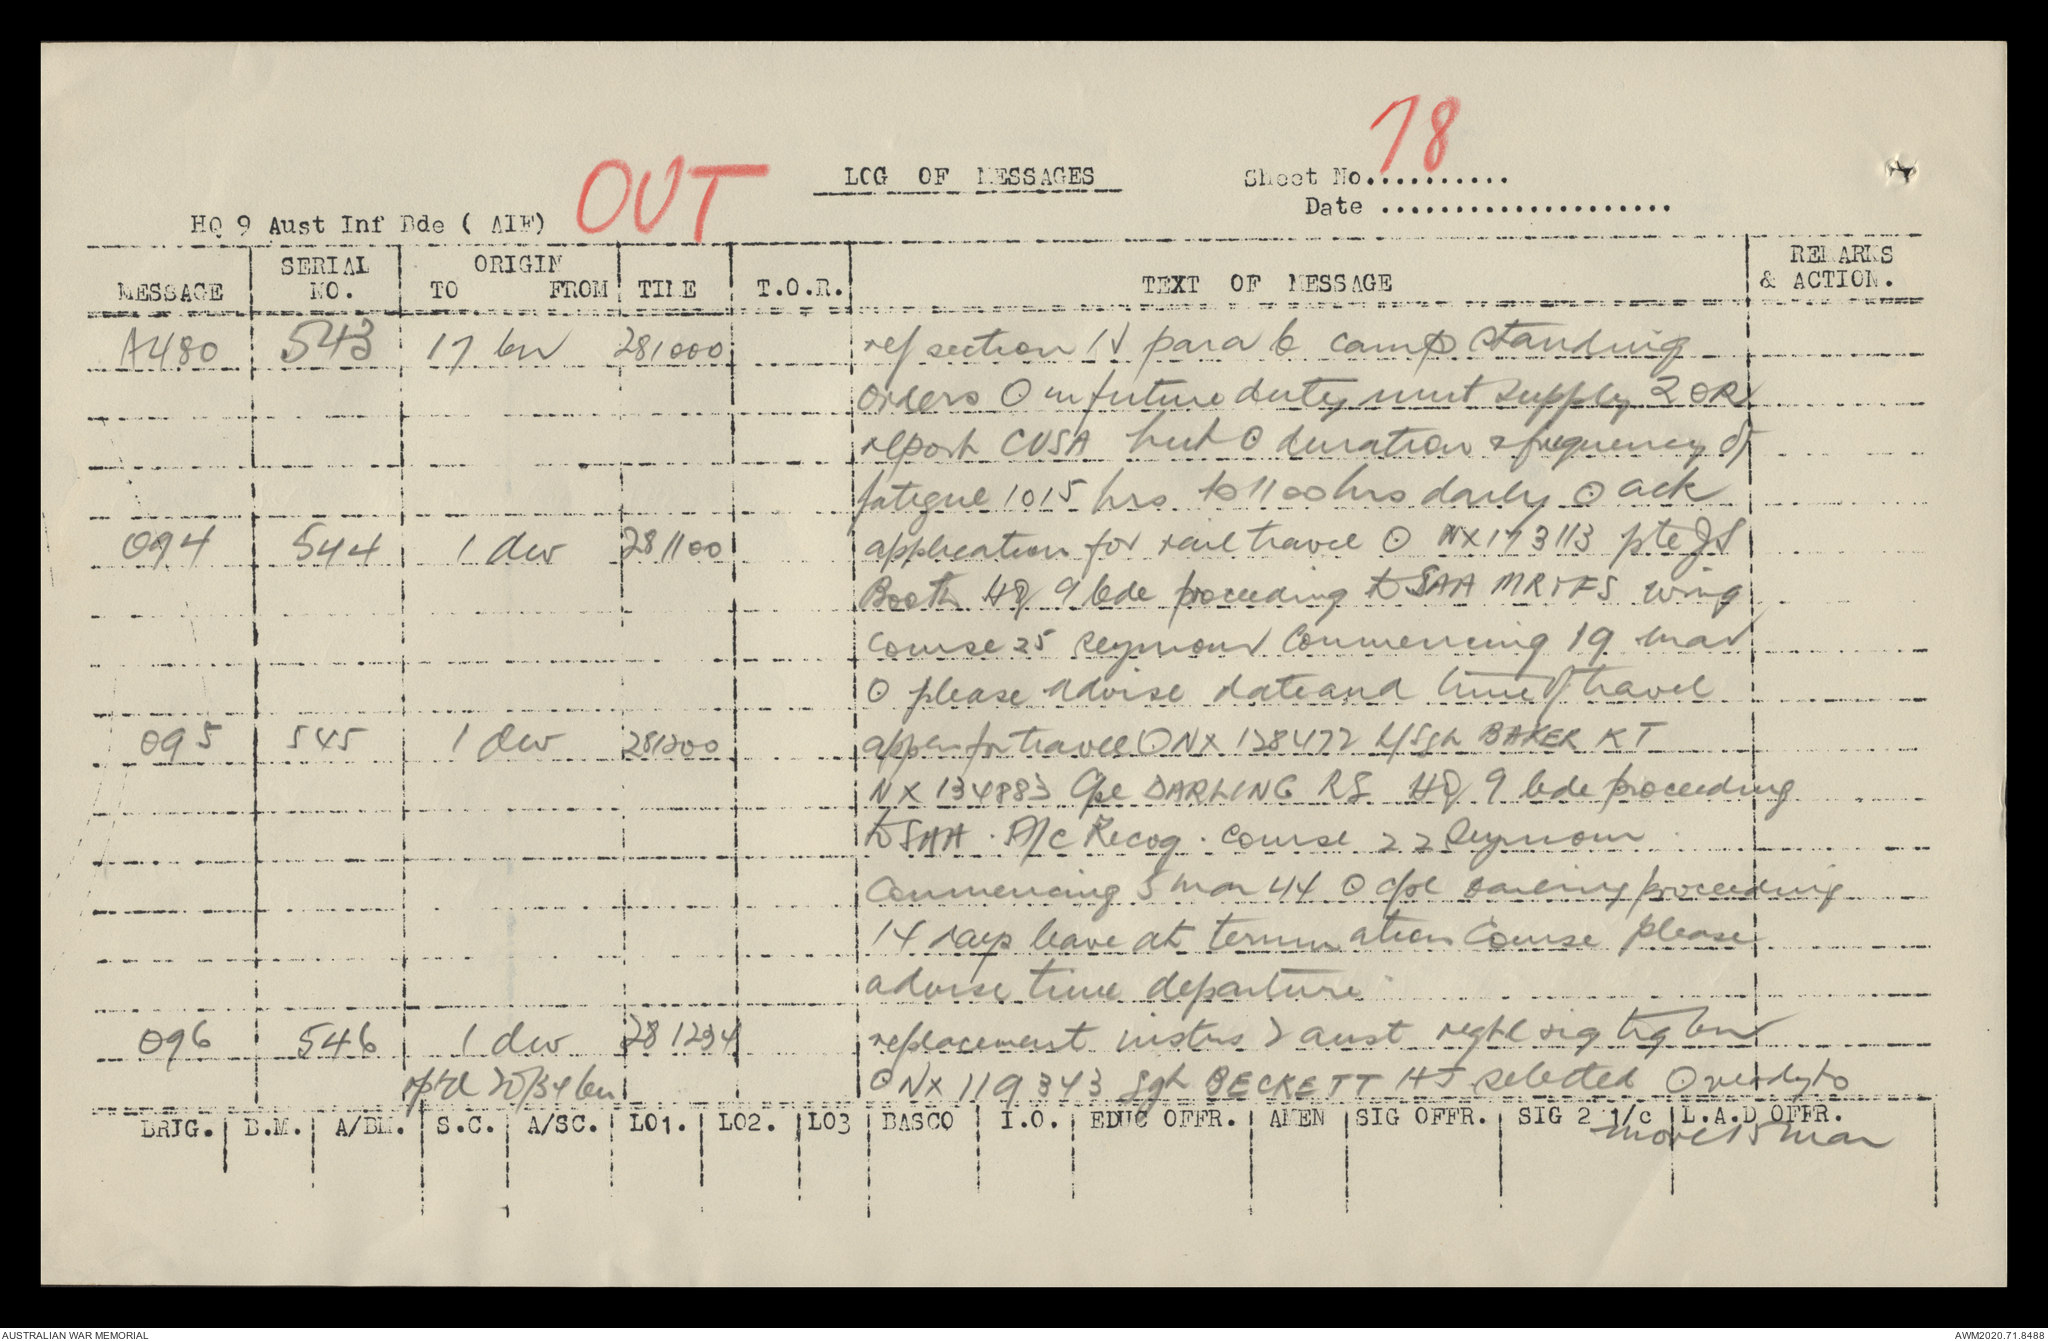 78
OUT
LOG OF MESSAGES
Sheet No..........
Date .....................
HQ 9 Aust Inf Bde ( AIF)
MESSAGE SERIAL NO. ORIGIN TO FROM TIME T.O.R. TEXT OF MESSAGE REMARKS & ACTION.
A480 543 17 bn 281000 ref section IV para 6 camp standing
orders O in future duty unit supply 2 OR
report CUSA hut O duration & frequency of
fatigue 1015 hrs to 1100 hrs daily O ack
094 544 1 div 281100 application for rail travel O NX173113 pte JS
Booth HQ 9 bde proceeding to SAA MR & FS wing
course 25 seymour commencing 19 mar
O please advise date and time of travel
095 545 1 div 281200 appln for travel O NX 128472 L/Sgt BAKER KT
NX 134883 Cpl DARLING RS HQ 9 bde proceeding
to SAA . A/c Recog . course 22 Seymour
commencing 5 mar 44 O cpl darling proceeding
14 days leave at termination course please
advise time departure
096 546 1 div 281234 replacement instrs 2 aust regtl sig trg bn
rptd 20/34 bn O NX 119343 Sgt BECKETT HJ selected O ready to
move 15 mar
BRIG. B.M. A/BM. S.C. A/SC. LO1. LO2. LO3 BASCO I.O. EDUC OFFR. AMEN SIG OFFR. SIG 2 i/c L.A.D OFFR.
AUSTRALIAN WAR MEMORIAL
AWM2020.71.8488